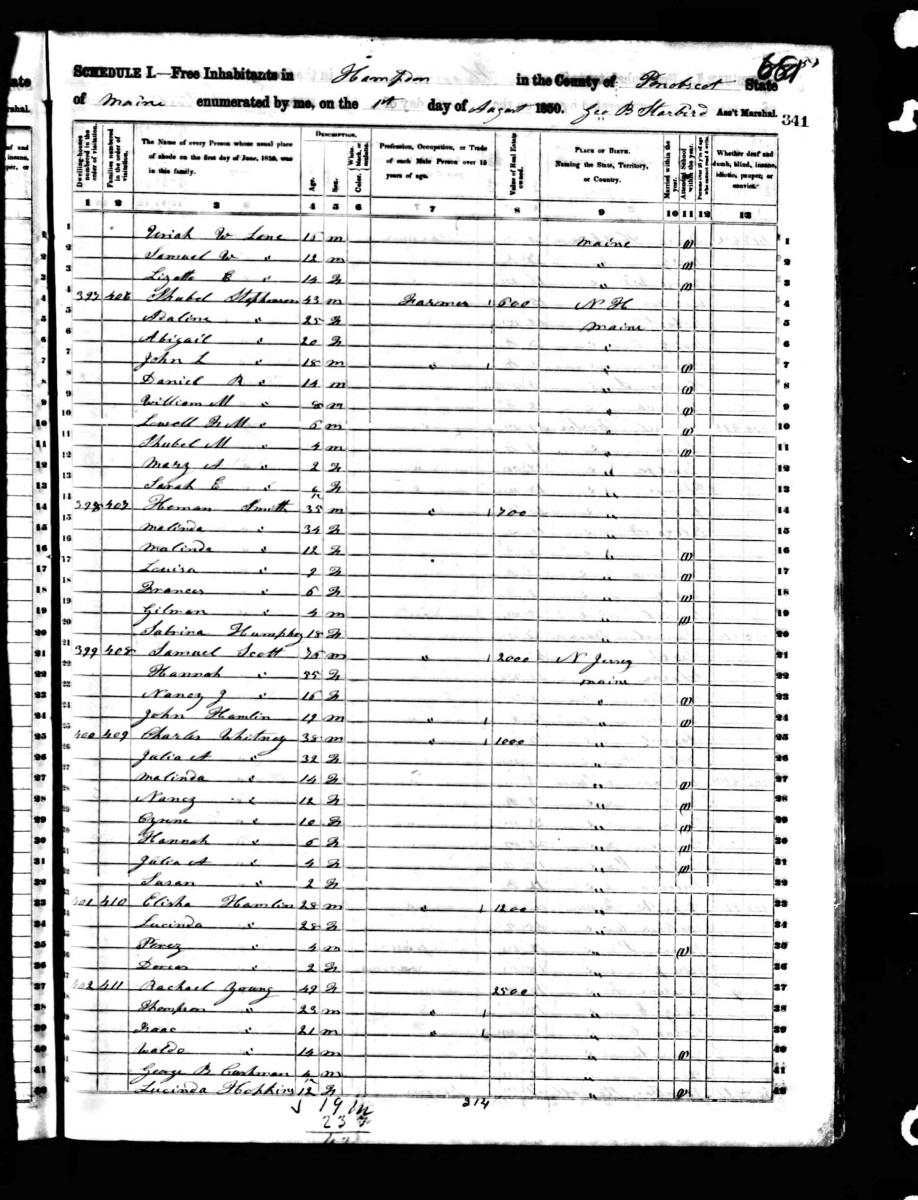 SCHEDULE I.—Free Inhabitants in Hampden in the County of Penobscot State
of Maine enumerated by me, on the 1st day of August 1850. Geo B Starbird Ass't Marshal. 341
Dwelling-houses numbered in the order of visitation. Families numbered in the order of visitation. The Name of every Person whose usual place of abode on the first day of June, 1850, was in this family. DESCRIPTION. Age. Sex. Color, White, black, or mulatto. Profession, Occupation, or Trade of each Male Person over 15 years of age. Value of Real Estate owned. PLACE OF BIRTH. Naming the State, Territory, or Country. Married within the year. Attended School within the year. Persons over 20 y'rs of age who cannot read & write. Whether deaf and dumb, blind, insane, idiotic, pauper, or convict.
1 2 3 4 5 6 7 8 9 10 11 12 13
1 Uriah W Lane 15 m maine 1 1
2 Samuel W " 12 m " 1 2
3 Lizette E " 14 F " 1 3
4 397 406 Shubel Stephenson 43 m Farmer 1 600 N H 4
5 Adaline " 25 F maine 5
6 Abigail " 20 F " 6
7 John L " 18 m " 1 " 1 7
8 Daniel R " 14 m " 1 8
9 William M " 8 m " 1 9
10 Lowell B M " 6 m " 1 10
11 Shubel M " 4 m " 1 11
12 Mary A " 2 F " 12
13 Sarah E " F " 13
14 398 407 Heman Smith 35 m " 1 700 " 14
15 Malinda " 34 F " 15
16 Malinda " 12 F " 1 16
17 Louisa " 9 F " 1 17
18 Frances " 6 F " 1 18
19 Gilman " 4 m " 1 19
20 Sabrina Humphry 18 F " 20
21 399 408 Samuel Scott 75 m " 1 2000 N Jersey 21
22 Hannah " F maine 22
23 Nancy J " 16 F " 1 23
24 John Hamlin 19 m " 1 " 1 24
25 400 409 Charles Whitney 38 m " 1 1000 " 25
26 Julia A " 32 F " 26
27 Malinda " 14 F " 1 27
28 Nancy " 12 F " 1 28
29 " 10 F " 1 29
30 Hannah " 6 F " 1 30
31 Julia A " 4 F " 1 31
32 Susan " 2 F " 32
33 401 410 Elisha Hamlin 28 m " 1 1200 " 33
34 Lucinda " 28 F " 34
35 Perez " 4 m " 1 35
36 Dorcas " 2 F " 36
37 402 411 Rachael Young 49 F 2500 " 37
38 Thompson " 23 m " 1 " 38
39 Isaac " 21 m " 1 " 39
40 Waldo " 14 m " 1 40
41 George B Cashman m " 41
42 Lucinda Hopkins 12 F " 1 42
19 m 214
23 F
42